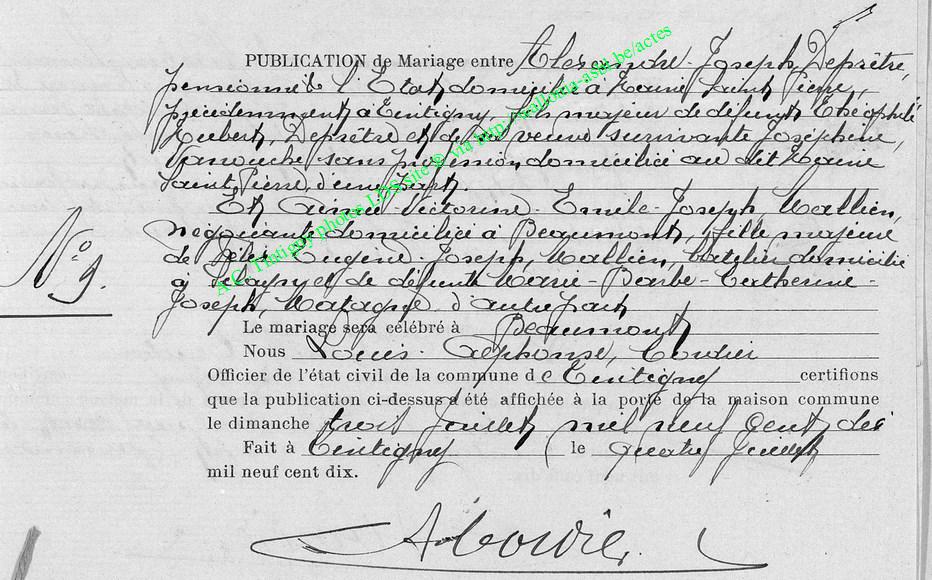 PUBLICATION de Mariage entre Alexandre-Joseph, Deprêtre,
pensionné de l'Etat domicilié à Haine Saint Pierre,
précédemment à Tintigny, fils majeur de défunt Théophile
Hubert, Deprêtre et de sa veuve survivante Joséphine
sans profession, domiciliée au dit Haine
Saint Pierre, d'une part.
Et Aimée-Victorine-Emile-Joseph, Wallien,
négociante domiciliée à Beaumont, fille majeure
de Eugène-Joseph, Wallien, batelier domicilié
à et de défunte Marie-Barbe-Catherine-
Joseph, Matagne d'autre part
N° 9.
Le mariage sera célébré à Beaumont
Nous Louis-Alphonse, Coudier
Officier de l'état civil de la commune de Tintigny certifions
que la publication ci-dessus a été affichée à la porte de la maison commune
le dimanche trois Juillet mil neuf cent dix
Fait à Tintigny le quatre Juillet
mil neuf cent dix.
A.C. Tintigny photos LDS site © via http://wallonia-asbl.be/actes